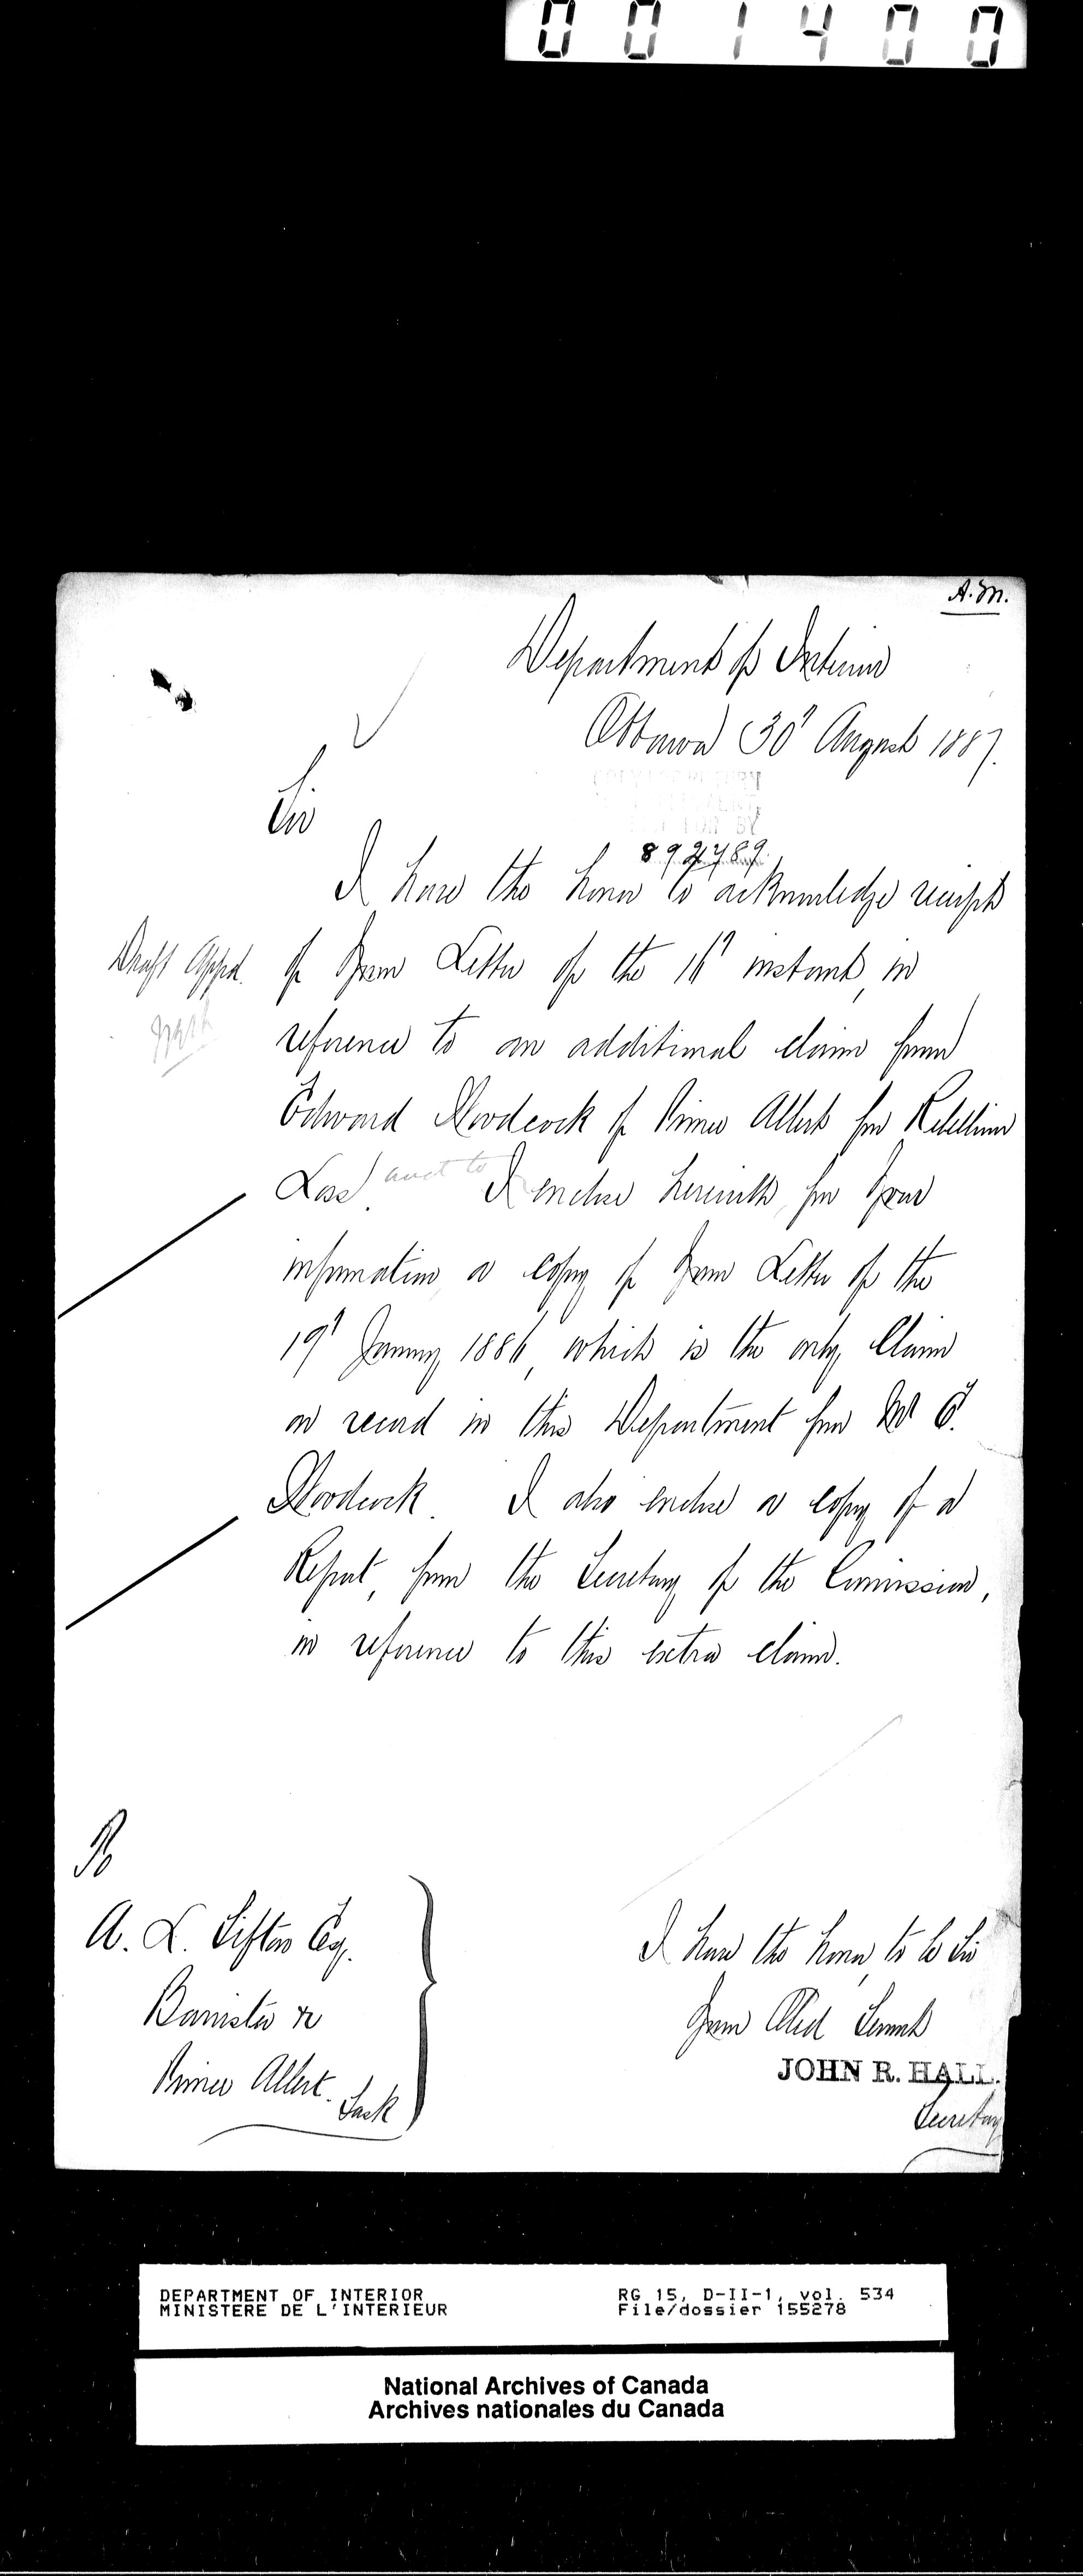 001400
A.M.
Department of Interior
Ottawa 30' August 1887.
Sir
892789
I have the honor to acknowledge receipt
Draft Appd.
of your Letter of the 16' instant, in
reference to an additional claim from
Edward Woodcock of Prince Albert for Rebellion
Loss. and to I enclose herewith, for your
information, a copy of your Letter of the
19' January 1886, which is the only Claim
on record in this Department from Mr E.
Woodcock. I also enclose a copy of a
Report, from the Secretary of the Commission,
in reference to this extra claim.
To
A. L. Sifton Esq.
Barrister &c
Prince Albert.
Sask
I have the honor, to be Sir
Your Obed Servant
JOHN R. HALL.
Secretary
DEPARTMENT OF INTERIOR
MINISTERE DE L'INTERIEUR
RG 15, D-II-1, vol. 534
File/dossier 155278
National Archives of Canada
Archives nationales du Canada